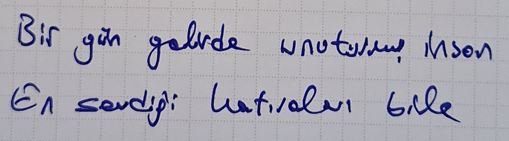 Bir gün gelirde unuturmuş insan
En sevdiği hatıraları bile